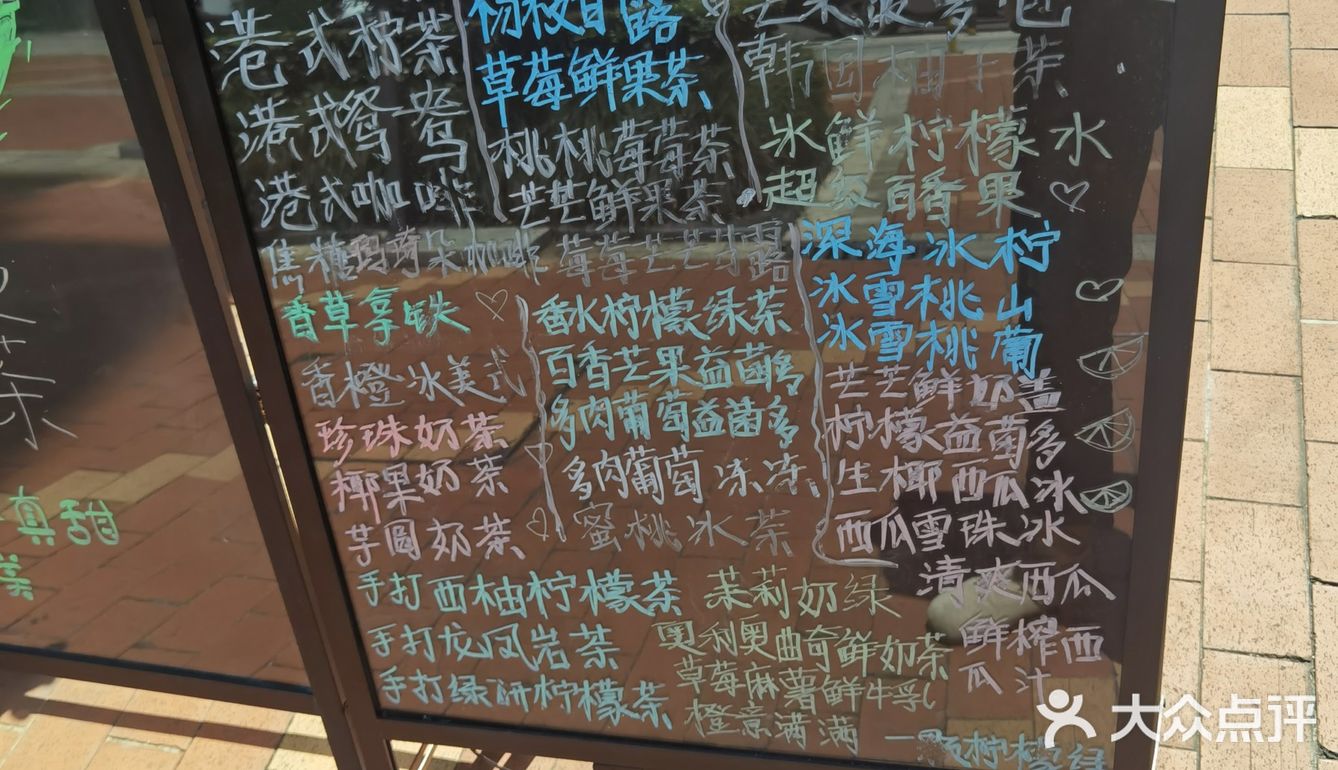 港式柠茶
港式鸳鸯
港式咖啡
焦糖玛奇朵咖啡
香草拿铁
香橙冰美式
珍珠奶茶
椰果奶茶
芋圆奶茶
杨枝甘露
草莓鲜果茶
桃桃莓莓茶
芒芒鲜果茶
莓莓芒芒甘露
香水柠檬绿茶
百香芒果益菌多
多肉葡萄益菌多
多肉葡萄冻冻
蜜桃冰茶
芒果菠萝包
韩国柚子茶
冰鲜柠檬水
超级百香果
深海冰柠
冰雪桃山
冰雪桃葡
芒芒鲜奶盖
柠檬益菌多
生椰西瓜冰
西瓜雪珠冰
清爽西瓜
鲜榨西
瓜汁
手打西柚柠檬茶
手打龙凤岩茶
手打绿研柠檬茶
茉莉奶绿
奥利奥曲奇鲜奶茶
草莓麻薯鲜牛乳
橙意满满
一颗柠檬绿
真甜
茶
大众点评